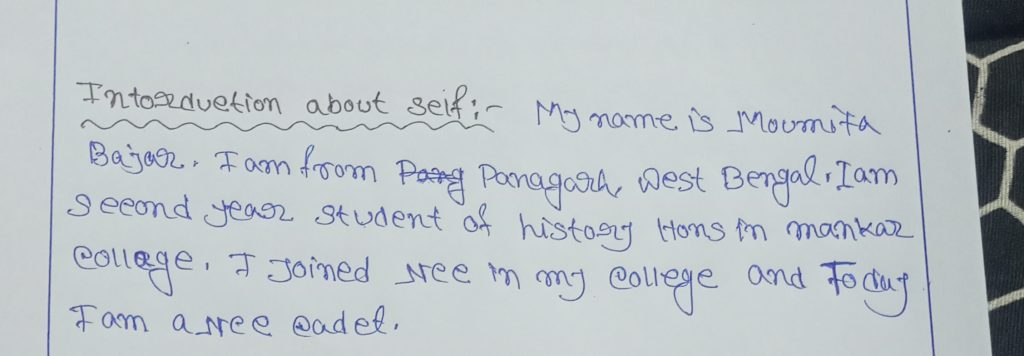 Intorduction about self:-  My name is Moumita
Bajar. I am from Panagarh, West Bengal. I am
second year student of history Hons in mankar
college. I Joined NCC in my college and Today
I am a NCC cadet.